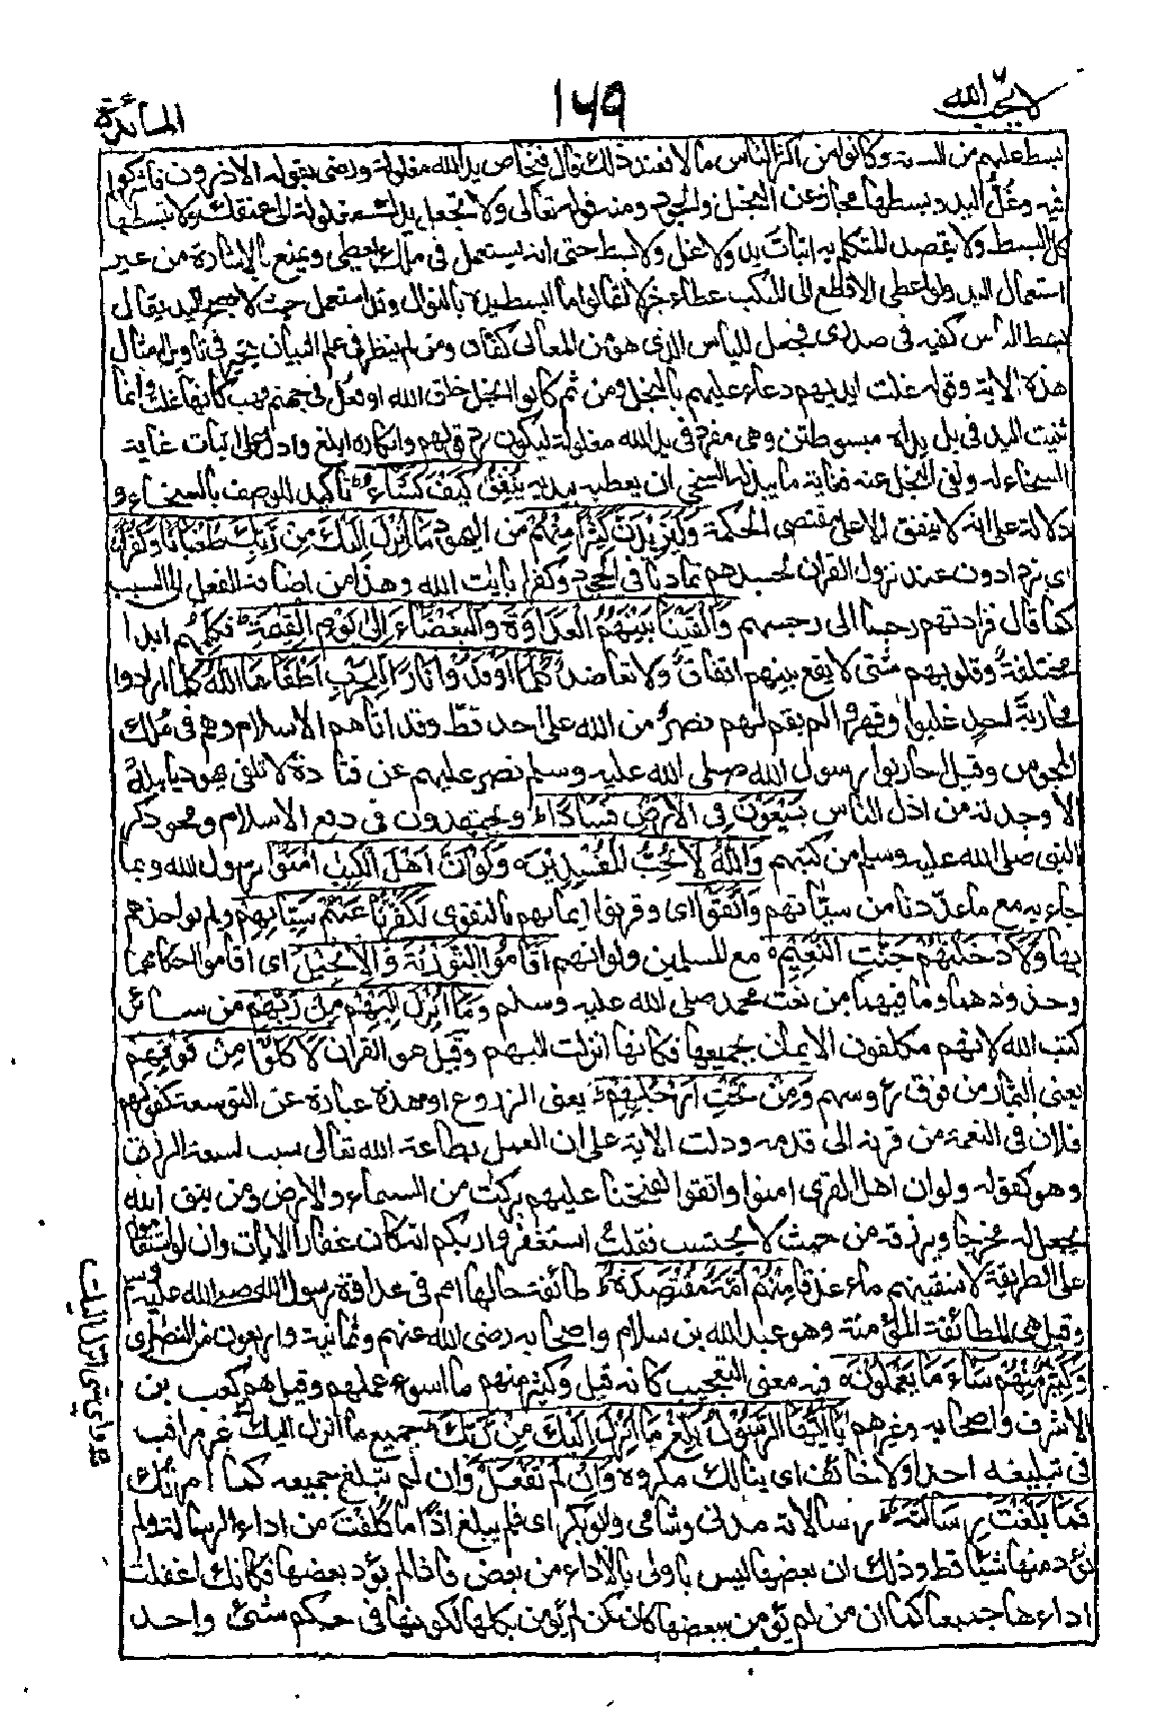 لا يحب الله
١٦٩
المائدة
بسط عليهم من السنة وكانوا من اكثر الناس مالا فعند ذلك قال فنحاص يد الله مغلولة ورضى بقوله الاخرون فاشركوا
فيه وغُلُّ اليد وبسطها مجاز عن البخل والجود ومنه قوله تعالى ولا تجعل يدك مغلولة الى عنقك ولا تبسطها
كل البسط ولا يقصد المتكلم به اثبات يد ولا غل ولا بسط حتى انه يستعمل في ملك يعطي ويمنع بالاشارة من غير
استعمال اليد ولو اعطى الاقطع الى المنكب عطاء جزلا لقالوا ما ابسط يده بالنوال وقد استعمل حيث لا يصح اليد يقال
بسط الياس كفيه في صدري فجعل للياس الذي هو من المعاني كفان ومن لم ينظر في علم البيان يتحير في تاويل امثال
هذه الاية وقوله غلت ايديهم دعاء عليهم بالبخل ومن ثم كانوا ابخل خلق الله او تغل في جهنم فهي كانها غلت وانما
ثنيت اليد في بل يداه مبسوطتن وهي مفردة في يد الله مغلولة ليكون رد قولهم وانكاره ابلغ وادل على اثبات غاية
السخاء له ونفى البخل عنه فغاية ما يبذله السخي ان يعطيه بيديه يُنْفِقُ كَيْفَ يَشَاءُ ط تاكيد للوصف بالسخاء و
دلالة على انه لا ينفق الا على مقتضى الحكمة وَلَيَزِيْدَنَّ كَثِيْرًا مِنْهُمْ من اليهود مَا اُنْزِلَ اِلَيْكَ مِنْ رَبِّكَ طُغْيَانًا وَكُفْرًا ط
اى يزدادون عند نزول القران لحسدهم تماديا في الجحود وكفرا بايات الله وهذا من اضافة الفعل الى السبب
كما قال فزادتهم رجسا الى رجسهم وَاَلْقَيْنَا بَيْنَهُمُ الْعَدَاوَةَ وَالْبَغْضَاءَ اِلٰى يَوْمِ الْقِيٰمَةِ ط فكلمهم ابدا
مختلفة وقلوبهم شتى لا يقع بينهم اتفاق ولا تعاضد كُلَّمَا اَوْقَدُوْا نَارًا لِلْحَرْبِ اَطْفَاَهَا اللهُ كلما ارادوا
محاربة احد غلبوا وقهروا لم يقم لهم نصر من الله على احد قط وقد اتاهم الاسلام وهم في ملك
المجوس وقيل كلما حاربوا رسول الله صلى الله عليه وسلم نصر عليهم عن قتادة لا تلقى يهوديا ببلدة
الا وجدته من اذل الناس يَسْعَوْنَ فِى الْاَرْضِ فَسَادًا ط ويجتهدون في دفع الاسلام ومحو ذكر
النبي صلى الله عليه وسلم من كتبهم وَاللهُ لَا يُحِبُّ الْمُفْسِدِيْنَ ه وَلَوْ اَنَّ اَهْلَ الْكِتٰبِ اٰمَنُوْا برسول الله وبما
جاء به مع ما عددنا من سيئاتهم وَاتَّقَوْا اى وقرنوا ايمانهم بالتقوى لَكَفَّرْنَا عَنْهُمْ سَيِّاٰتِهِمْ ولم نواخذهم
بها وَلَاَدْخَلْنٰهُمْ جَنّٰتِ النَّعِيْمِ ه مع المسلمين ولو انهم اَقَامُوا التَّوْرٰىةَ وَالْاِنْجِيْلَ اى اقاموا احكامهما
وحدودهما وما فيهما من نعت محمد صلى الله عليه وسلم وَمَا اُنْزِلَ اِلَيْهِمْ مِنْ رَبِّهِمْ من سائر
كتب الله لانهم مكلفون الايمان بجميعها فكانها انزلت اليهم وقيل هو القران لَاَكَلُوْا مِنْ فَوْقِهِمْ
يعني الثمار من فوق رءوسهم وَمِنْ تَحْتِ اَرْجُلِهِمْ ط يعني الزروع او هذه عبارة عن التوسعة كقولهم
فلان في النعمة من قرنه الى قدمه ودلت الاية على ان العمل بطاعة الله تعالى سبب لسعة الرزق
وهو كقوله ولو ان اهل القرى امنوا واتقوا لفتحنا عليهم بركت من السماء والارض ومن يتق الله
يجعل له مخرجا ويرزقه من حيث لا يحتسب فقلت استغفروا ربكم انه كان غفارا الايات وان لو استقاموا
على الطريقة لاسقينهم ماء غدقا مِنْهُمْ اُمَّةٌ مُقْتَصِدَةٌ ط طائفة حالها امم في عداوة رسول الله صلى الله عليه وسلم
وقيل هي الطائفة المؤمنة وهو عبد الله بن سلام واصحابه رضى الله عنهم وثمانية واربعون من النصارى
وَكَثِيْرٌ مِنْهُمْ سَاءَ مَا يَعْمَلُوْنَ ه فيه معنى التعجيب كانه قيل وكثير منهم ما اسوء عملهم وقيل هم كعب بن
الاشرف واصحابه وغيرهم يٰاَيُّهَا الرَّسُوْلُ بَلِّغْ مَا اُنْزِلَ اِلَيْكَ مِنْ رَبِّكَ ط جميع ما انزل اليك غير مراقب
في تبليغه احدا ولا خائف اى ينالك مكروه وَاِنْ لَمْ تَفْعَلْ وان لم تبلغ جميعه كما امرتك
فَمَا بَلَّغْتَ رِسَالَتَهٗ ط رسالاته مدني وشامي وابو بكر اى فلم تبلغ اذا ما كلفت من اداء الرسالة ولم
تؤد منها شيئا قط وذلك ان بعضها ليس باولى بالاداء من بعض فاذا لم تؤد بعضها فكانك اغفلت
اداءها جميعا كما ان من لم يؤمن ببعضها كان كمن لم يؤمن بكلها لكونها في حكم شئ واحد